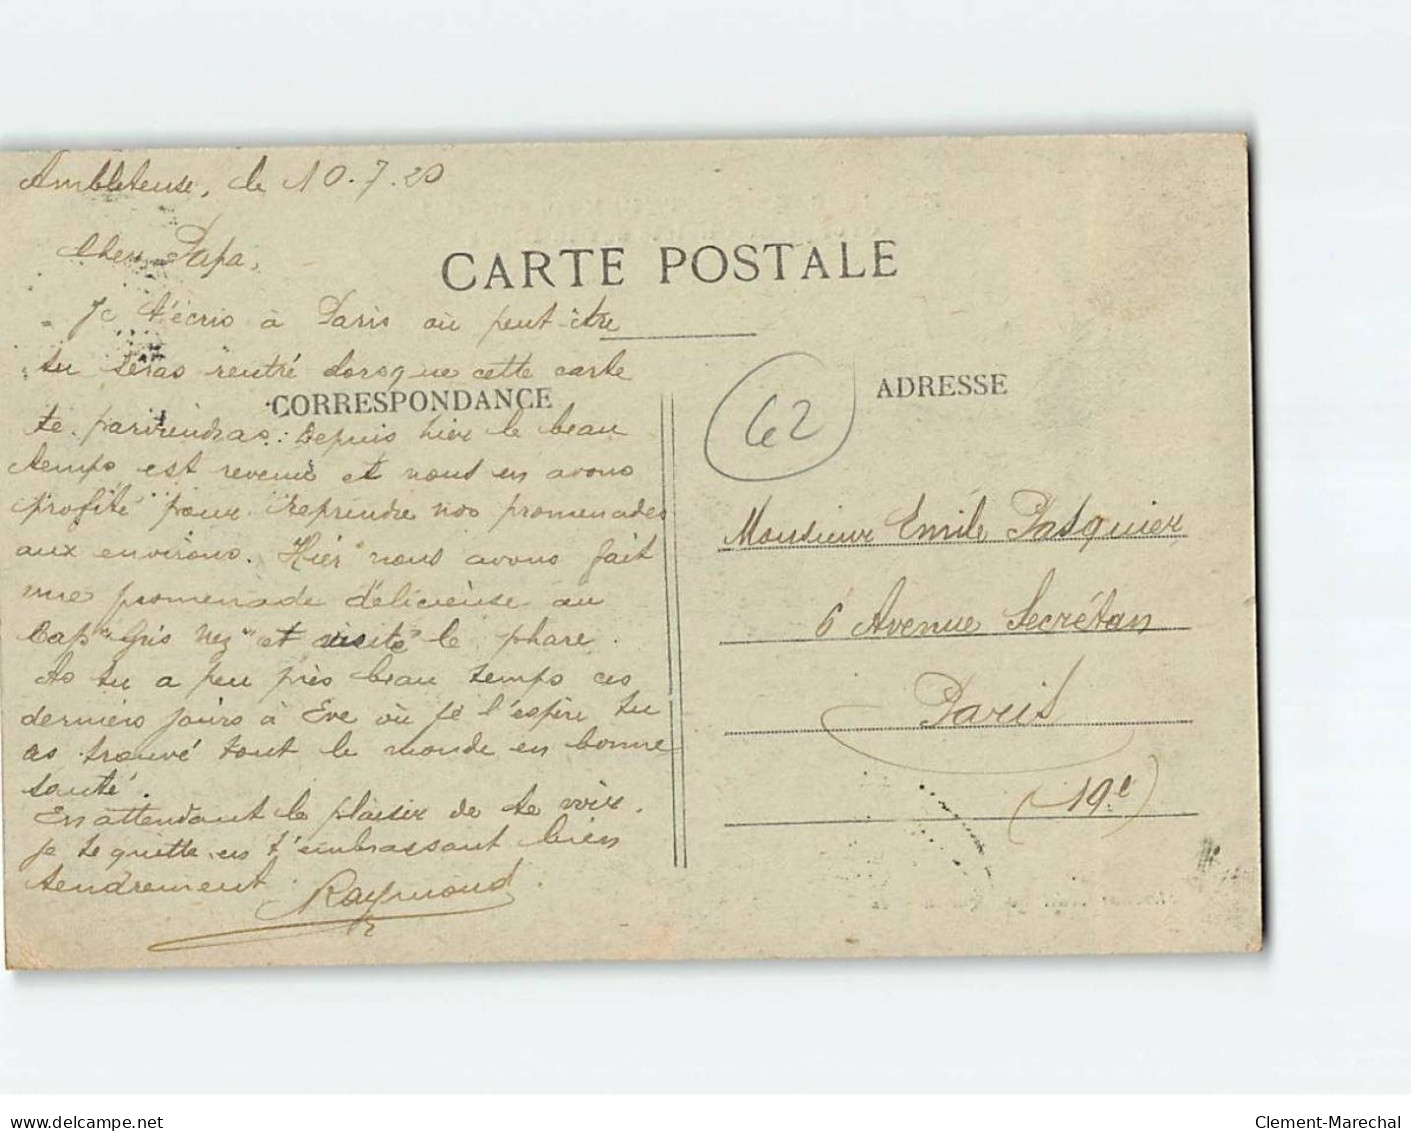 Ambleteuse, le 10.7.20
Cher Papa,
CARTE POSTALE
Je t'écris à Paris où peut-être
tu seras rentré lorsque cette carte
CORRESPONDANCE
ADRESSE
62
te parviendras. Depuis hier le beau
temps est revenu et nous en avons
profité pour reprendre nos promenades
aux environs. Hier nous avons fait
une promenade délicieuse au
Cap "Gris Nez" et visité le phare.
As tu a peu près beau temps ces
derniers jours à Eve où je l'espère tu
as trouvé tout le monde en bonne
santé.
En attendant le plaisir de te voir.
je te quitte en t'embrassant bien
tendrement. Raymond.
Monsieur Emile Pasquier
6 Avenue Secrétan
Paris
(19e)
delcampe.net
Clement-Marechal